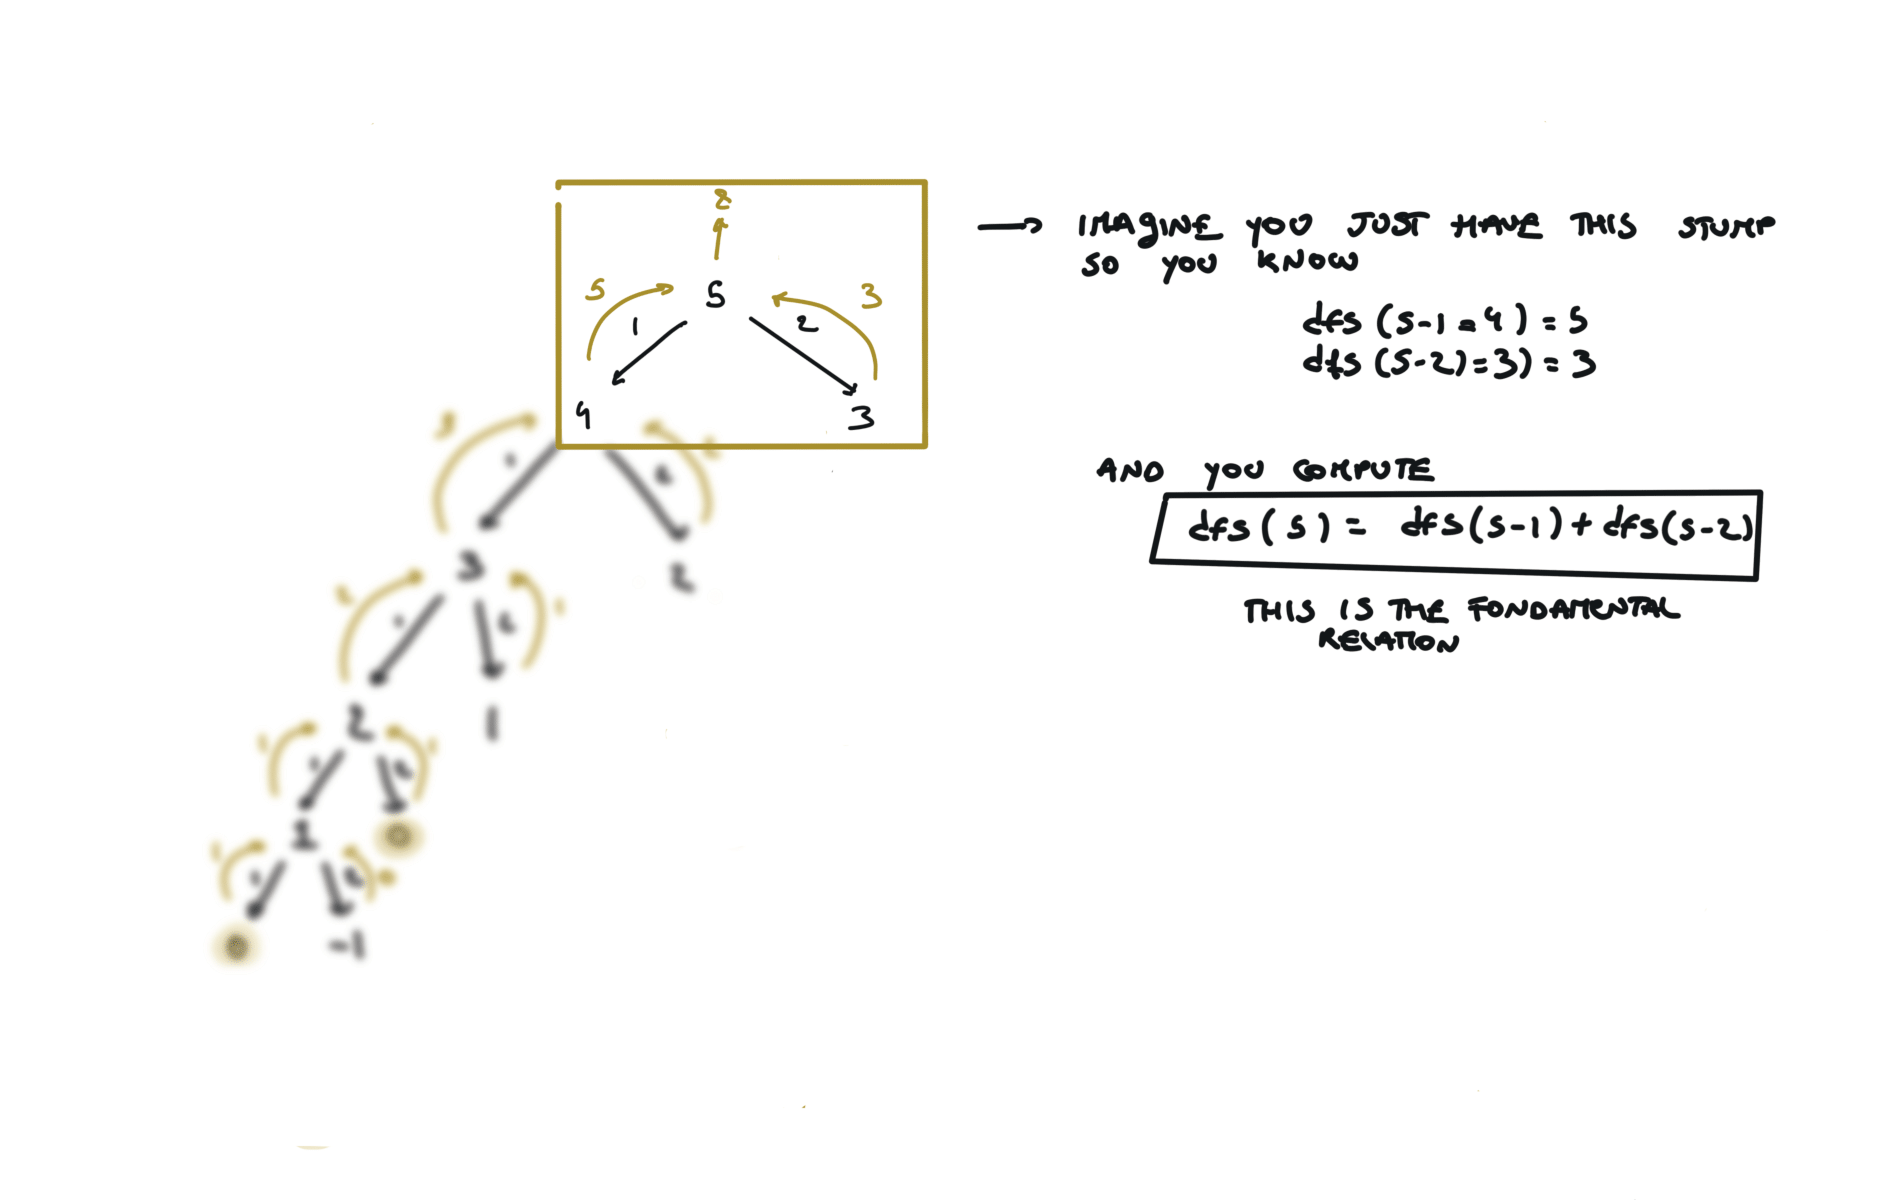 8
5
5
3
1
2
4
3
→ IMAGINE YOU JUST HAVE THIS STUMP
SO YOU KNOW
dfs (5-1=4) = 5
dfs (5-2)=3) = 3
AND YOU COMPUTE
dfs(5) = dfs(5-1) + dfs(5-2)
THIS IS THE FONDAMENTAL
RELATION
3
1
2
3
2
1
2
2
1
1
1
2
1
1
1
0
1
1
0
-1